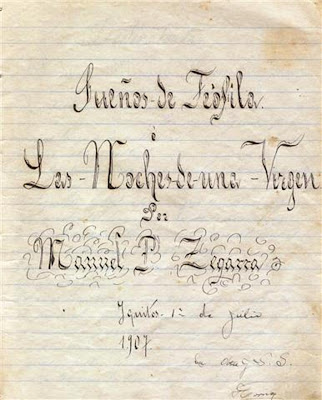 Sueños de Teófila
ó
Las-Noches-de-una-Virgen
Por
Manuel P. Zegarra
Yquitos 1º de julio
1907